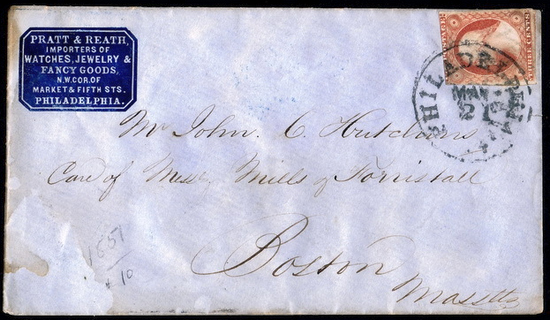 PRATT & REATH,
IMPORTERS OF
WATCHES, JEWELRY &
FANCY GOODS,
N.W. COR. OF
MARKET & FIFTH STS.
PHILADELPHIA.
THREE CENTS
PHILADELPHIA
MAY
2
Mr John. C. Hutchins
Care of Messrs Mills & Forristall
Boston
Masstts
1851
10